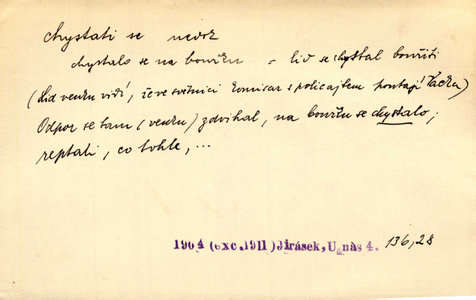 chystati se neos
chystalo se na bouřku = liv se chystal bouřiti
(Lid venku vidí, že ve světnici komisar s policajtem poutají Vacka)
Odpor se tam (venku) zdvihal, na bouřku se chystalo;
reptali, co tohle, ...
1904 (exc.1911) Jirásek, U nás 4. 136,28